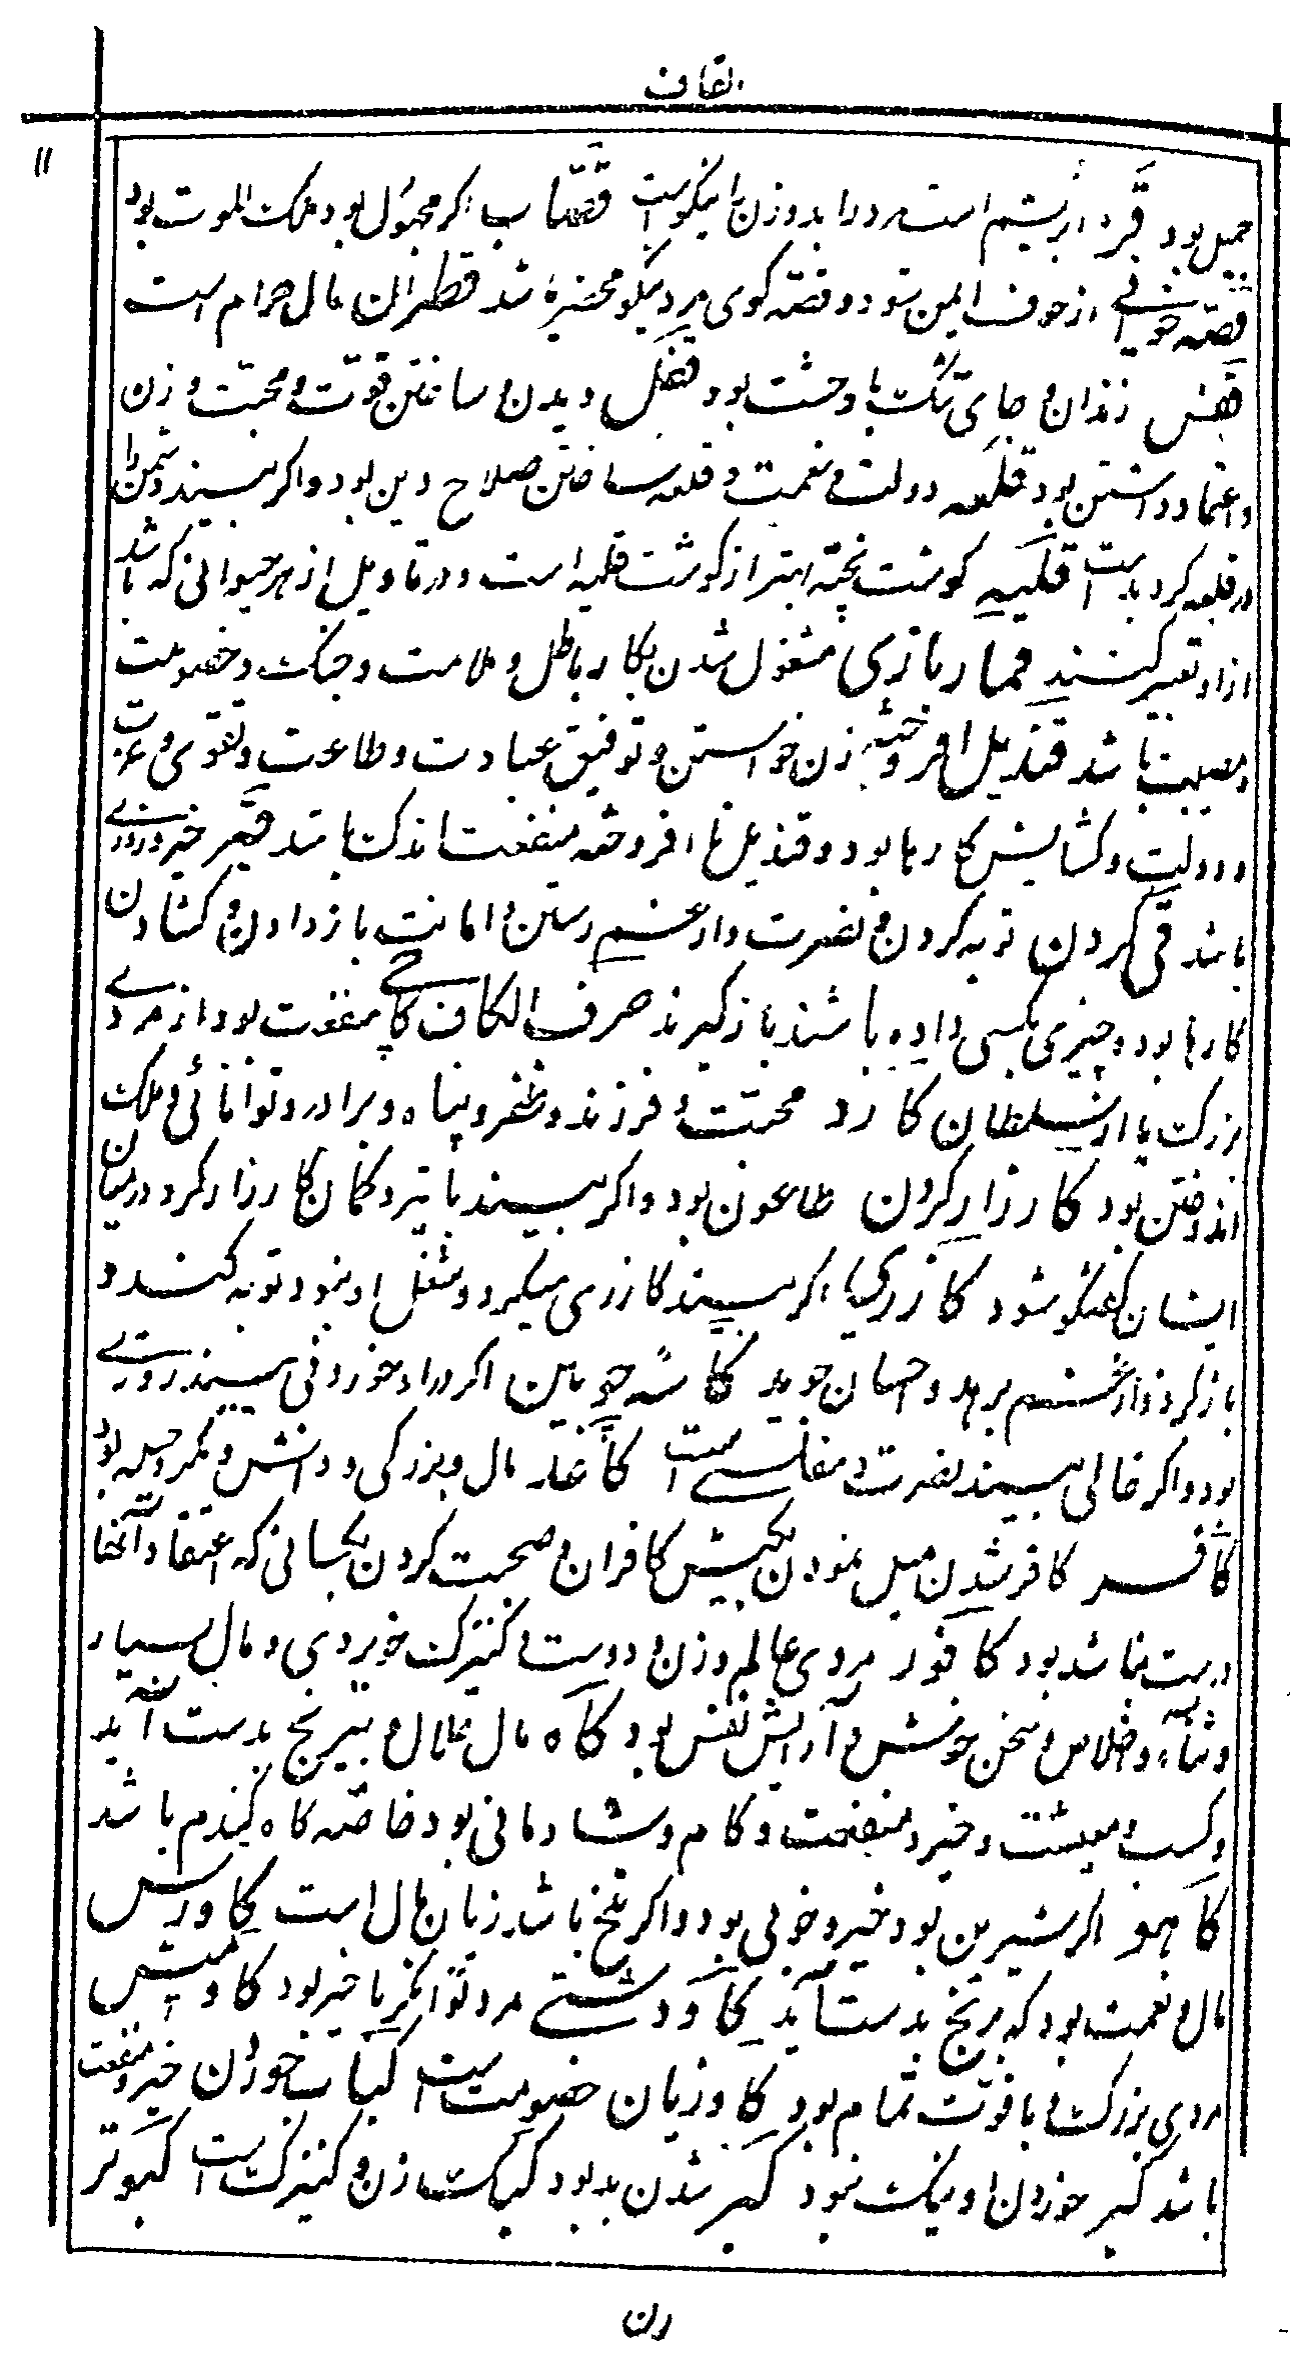 القاف
۱۱
جمیل بود قز و ابریشم است مرد را بد و زن را نیکو است قصّاب اگر مجهول بود ملک الموت بود
قصّه خوانی از خوف ایمن شود و قصّه گوی مرد نیکو محضر شد قطران مال حرام است
قفس زندان و جای تنگ با وحشت بود قفل دیدن و ساختن قوّت و محبّت و زن
و اعتماد داشتن بود قلعه دولت و نعمت و قلعه ساختن صلاح دین بود و اگر بیند دشمن را
در قلعه کرد بد است قلیه گوشت پخته بهتر از گوشت قلیه است و در تاویل از هر حیوانی که باشد
ازاو تعبیر کنند قمار بازی مشغول شدن بکار باطل و ملامت و جنگ و خصومت
و مصیبت باشد قندیل افروخته زن خواستن و توفیق عبادت و طاعت و تقوی و عزت
و دولت و گشایش کارها بود و قندیل نا افروخته منفعت اندک باشد قیر خیر و روزی
باشد قی کردن توبه کردن و نصرت و از غم رستن و امانت باز دادن و گشادن
کارها بود و چیزی بکسی داده باشند باز گیرند حرف الکاف کاچی منفعت بود از مردے
بزرگ یا از سلطان کارد محبّت و فرزند و ظفر و پناه و برادر و توانائی و ملک
اندوختن بود کارزار کردن طاعون بود و اگر بیند با تیر و کمان کارزار کرد در میان
ایشان گفتگو شود کازری اگر بیند کازری میکرد و شغل او نبود توبه کند و
باز گردد از غم برهد و احسان جوید کاسه چوبین اگر در او خوردنی بیند روزی
بود و اگر خالی بیند نصرت و مفلسی است کاغذ مال و بزرگی و دانش و مکر و حیله بود
کافر کافر شدن میل نمودن بکیش کافران و صحبت کردن بکسانی که اعتقاد آنها
درست نباشد بود کافور مردی عالم و زن و دوست و کنیزک خوبروی و مال بسیار
و ثناء و اخلاص و سخن خوش و آرایش نفس بود کاه مال حلال و بیرنج بدست آید
و کسب و معیشت و خیر و منفعت و کام و شادمانی بود خاصّه کاه گندم باشد
کاهو اگر شیرین بود خیر و خوبی بود و اگر تلخ باشد زیان مال است کاورس
مال و نعمت بود که برنج بدست آید گاو دشتے مرد توانگر با خیر بود گاومیش
مردی بزرگ و با قوّت تمام بود گاو زبان خصومت است کباب خوردن خیر و منفعت
باشد کبر خوردن او نیک نبود گبر شدن بد بود کبک زن و کنیزک است کبوتر
رن